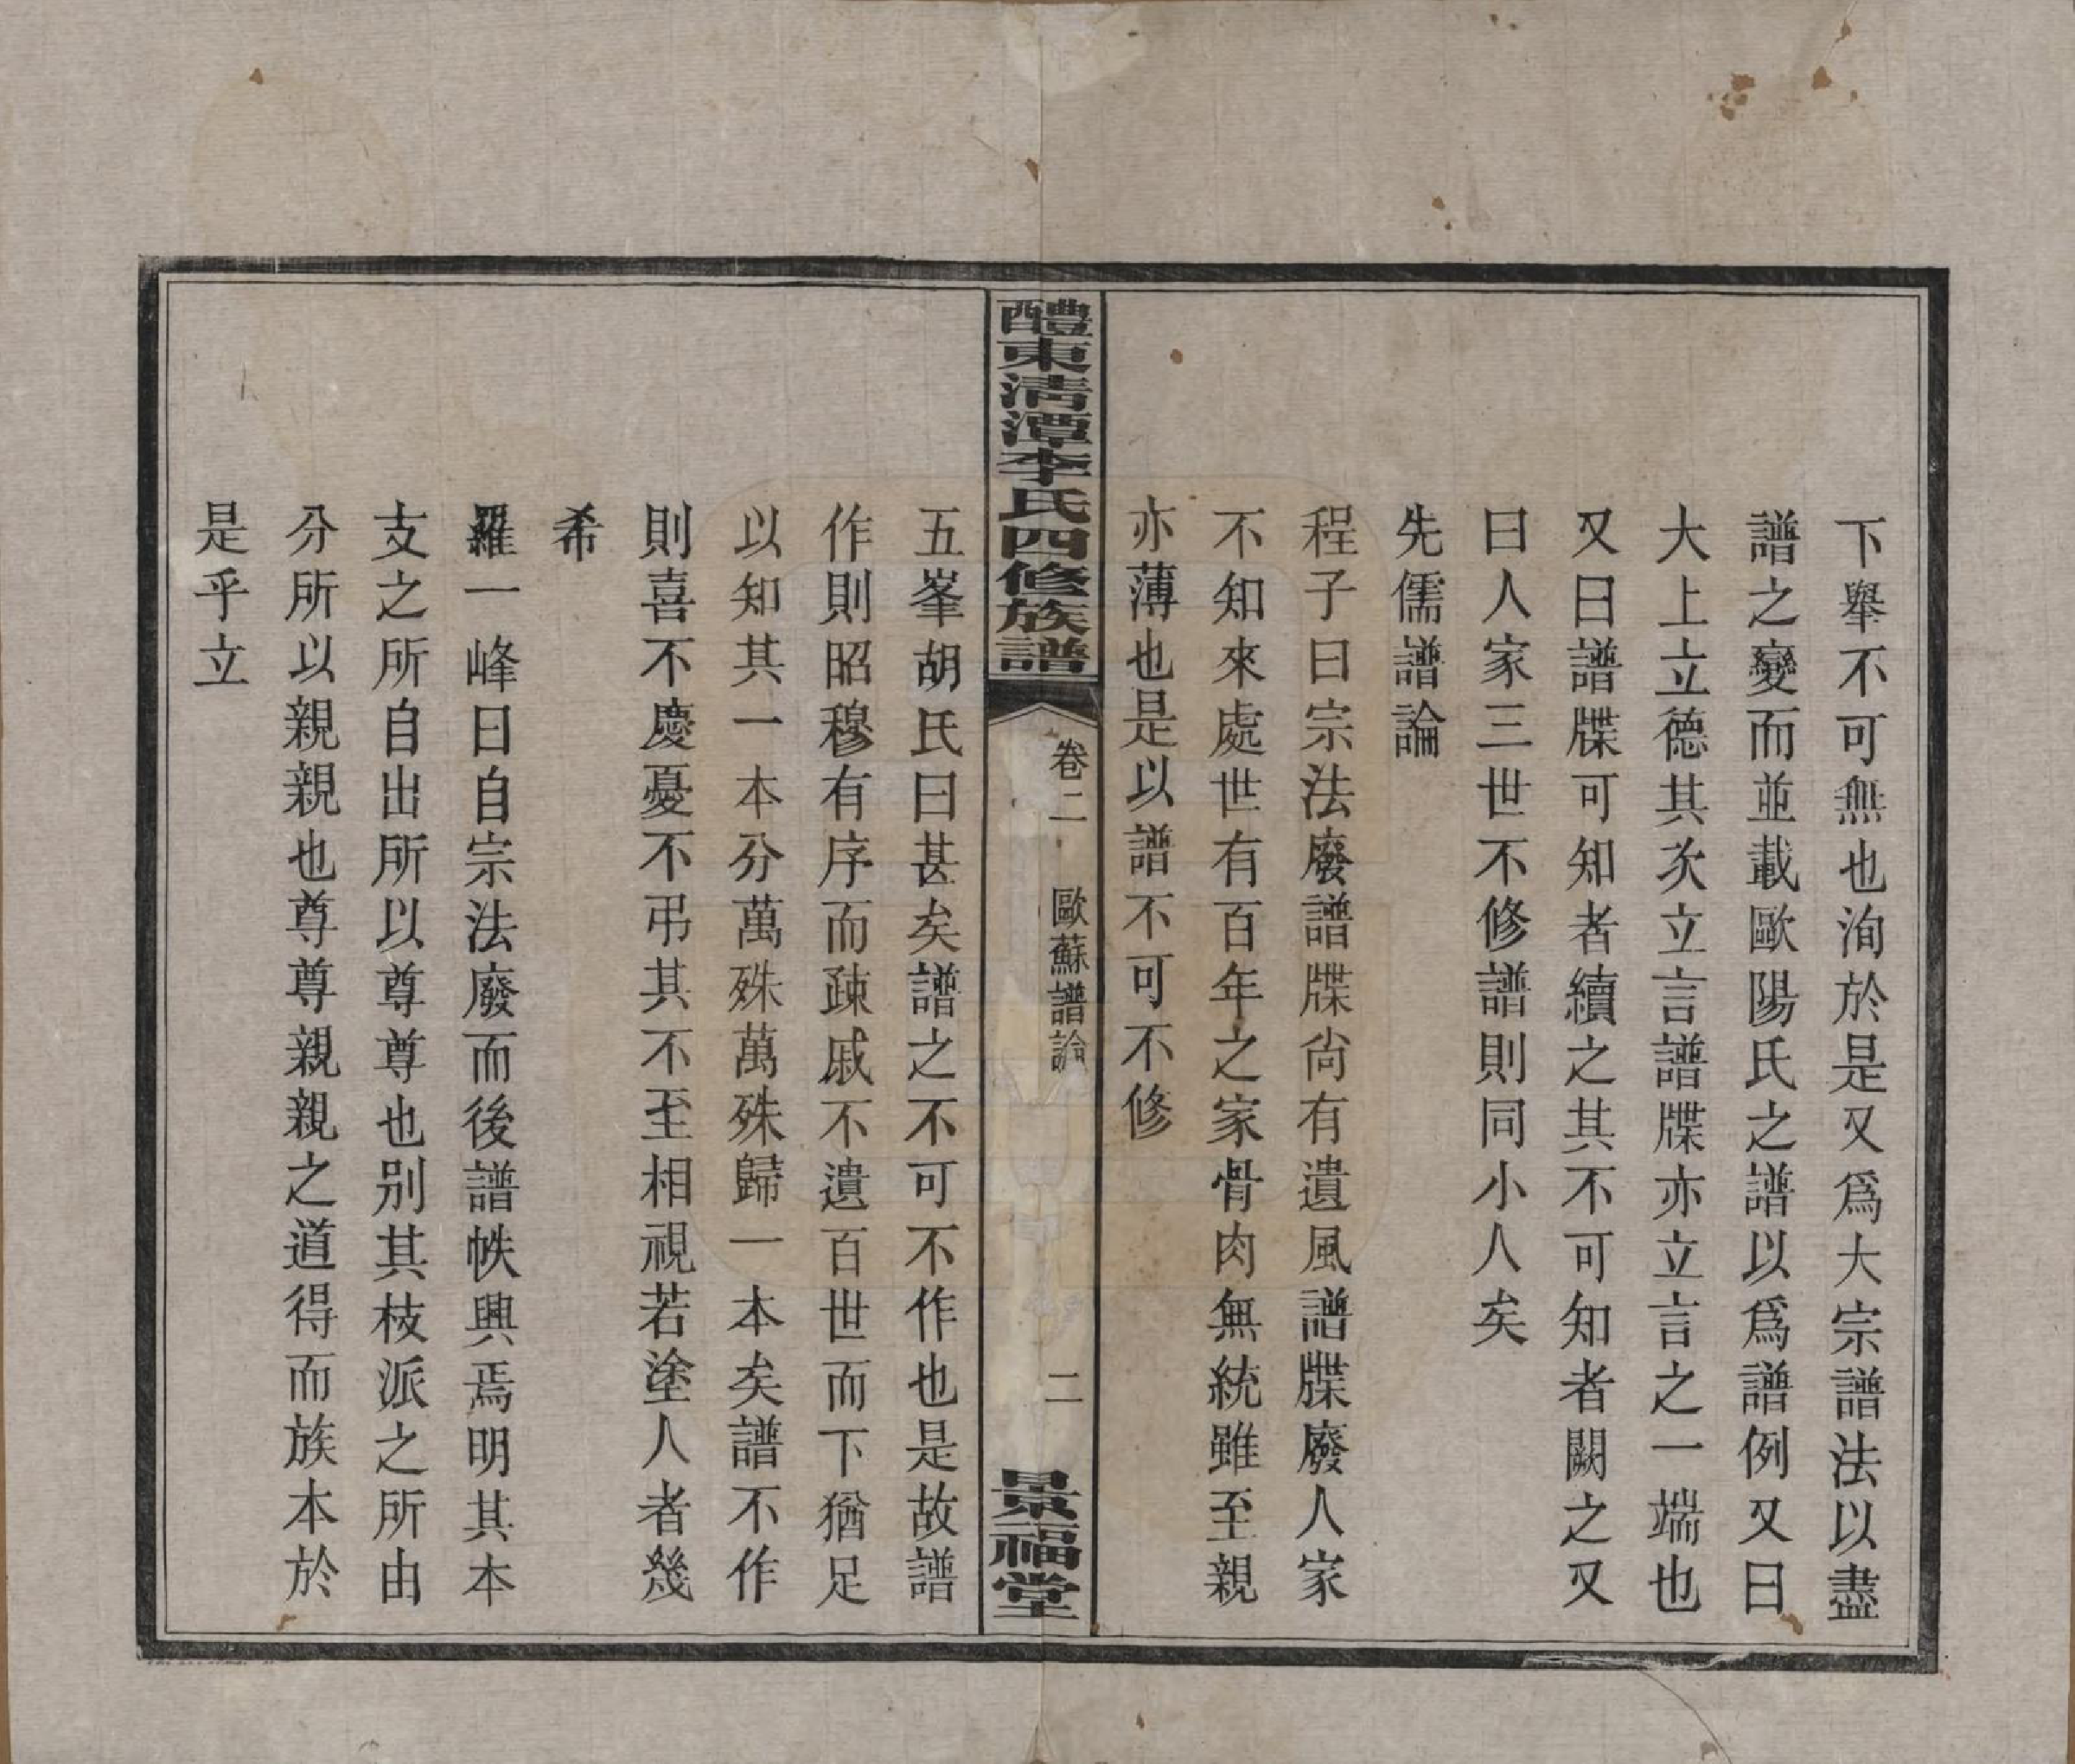 下舉不可無也洵於是又爲大宗譜法以盡
譜之變而並載歐陽氏之譜以爲譜例又曰
大上立德其次立言譜牒亦立言之一端也
又曰譜牒可知者續之其不可知者闕之又
曰人家三世不修譜則同小人矣
先儒譜論
程子曰宗法廢譜牒尙有遺風譜牒廢人家
不知來處世有百年之家骨肉無統雖至親
亦薄也是以譜不可不修
醴東清潭李氏四修族譜
卷二
歐蘇譜論
二
景福堂
五峯胡氏曰甚矣譜之不可不作也是故譜
作則昭穆有序而疎戚不遺百世而下猶足
以知其一本分萬殊萬殊歸一本矣譜不作
則喜不慶憂不弔其不至相視若塗人者幾
希
羅一峰曰自宗法廢而後譜帙興焉明其本
支之所自出所以尊尊也别其枝派之所由
分所以親親也尊尊親親之道得而族本於
是乎立